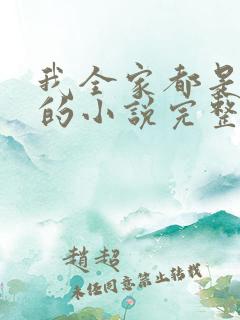 我全家都是
的小说完整
趙超
未经同意禁止转载